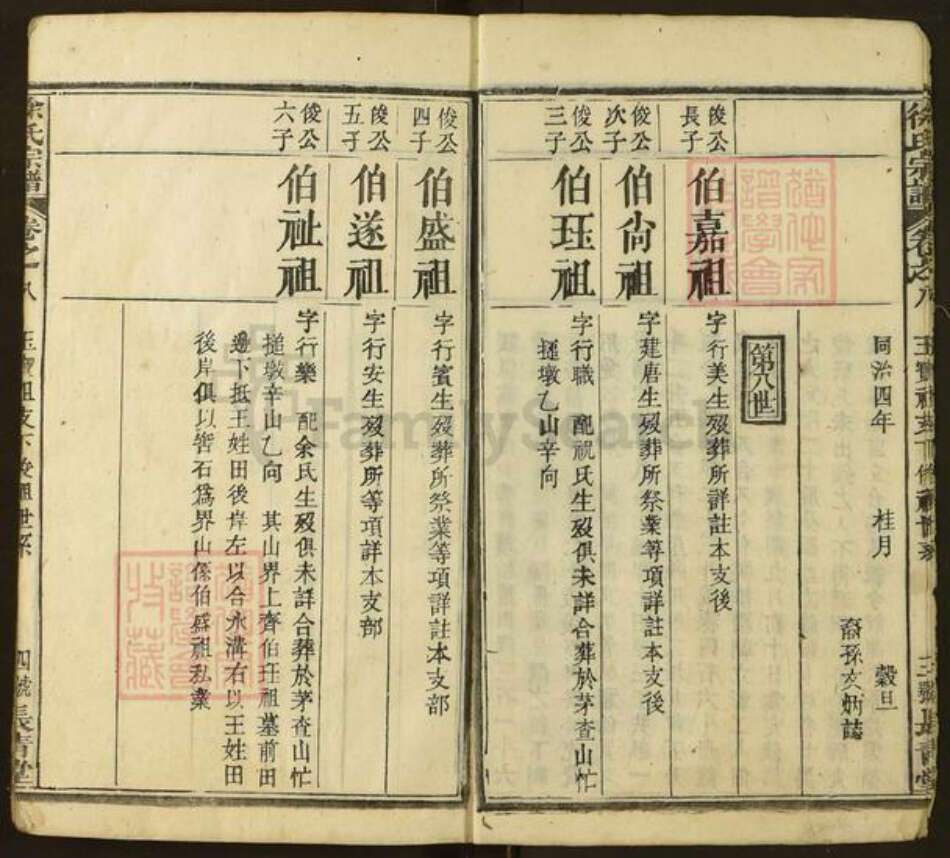 徐氏宗譜 卷之八 玉寶祖支下俊祖世系 三號 長青堂
同治四年 桂月 穀旦
裔孫文炳誌
第八世
俊公長子
伯嘉祖
字行美生歿葬所詳註本支後
俊公次子
伯尙祖
字建唐生歿葬所祭業等項詳註本支後
俊公三子
伯珏祖
字行職 配祝氏生歿俱未詳合葬於茅查山忙
搥墩乙山辛向
俊公四子
伯盛祖
字行賓生歿葬所祭業等項詳註本支部
俊公五子
伯遂祖
字行安生歿葬所等項詳本支部
俊公六子
伯祉祖
字行樂 配余氏生歿俱未詳合葬於茅查山忙
搥墩辛山乙向 其山界上齊伯珏祖墓前田
邊下抵王姓田後岸左以合水溝右以王姓田
後岸俱以砦石爲界山係伯盛祖私業
徐氏宗譜 卷之八 玉寶祖支下俊祖世系 四號 長青堂
FamilySearch